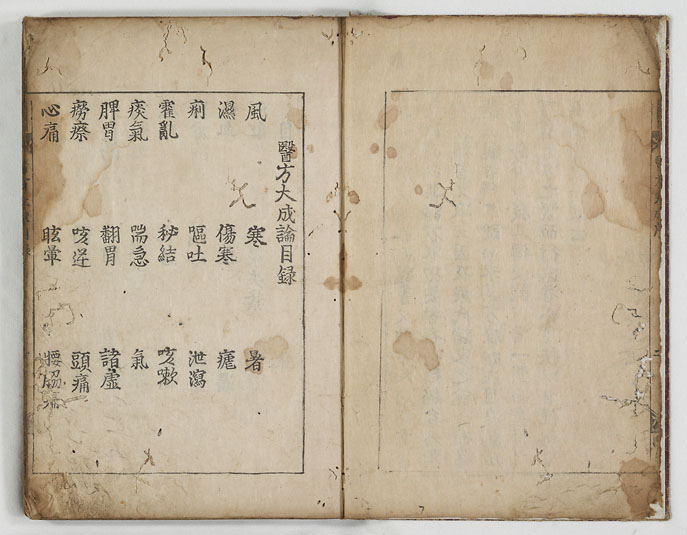 醫方大成論目録
風 寒 暑
濕 傷寒 瘧
痢 嘔吐 泄瀉
霍亂 秘結 咳嗽
痰氣 喘急 氣
脾胃 翻胃 諸虛
癆瘵 咳逆 頭痛
心痛 眩暈 腰脇痛